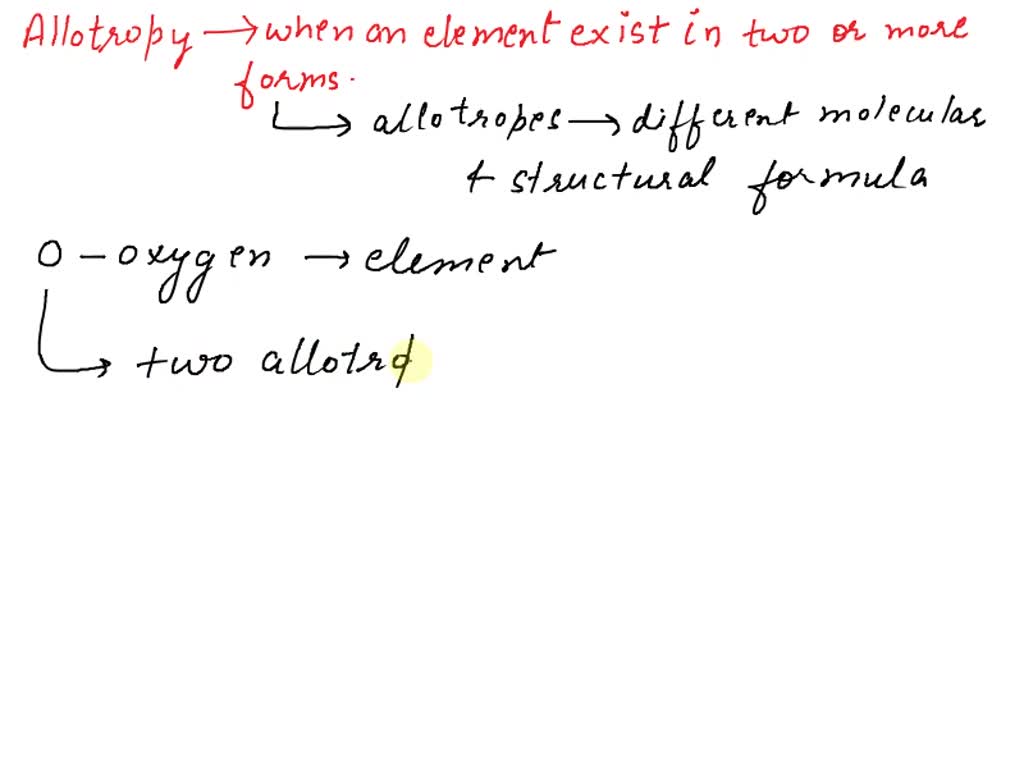 Allotropy → when an element exist in two or more
forms.
↳ allotropes → different molecular
+ structural formula
O - oxygen → element
↳ two allotro